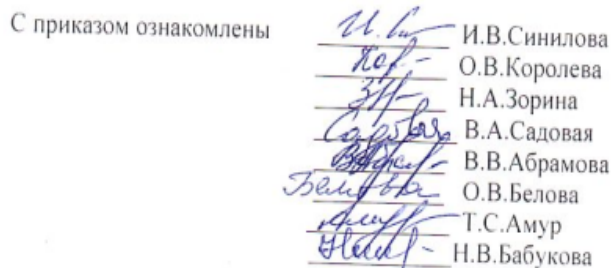 С приказом ознакомлены И.В.Синилова
О.В.Королева
Н.А.Зорина
Садовая В.А.Садовая
В.В.Абрамова
Белова О.В.Белова
Т.С.Амур
Н.В.Бабукова